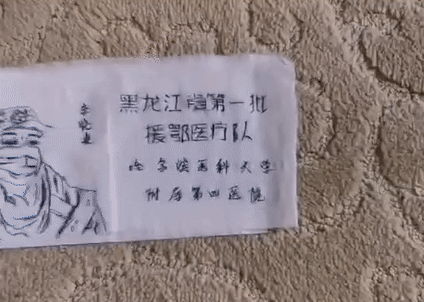 黑龙江省第一批
援鄂医疗队
哈尔滨医科大学
附属第四医院